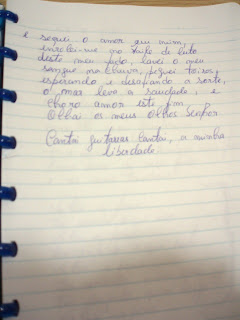 e sequei o amor em mim,
enrolei-me no xaile de luto
deste meu fado, lavei o meu
sangue na chuva, peguei toiros,
esperando, e desafiando a sorte,
o mar leva a saudade, e
choro amor este fim
Olhai os meus olhos Senhor
Cantai guitarras cantai, a minha
liberdade